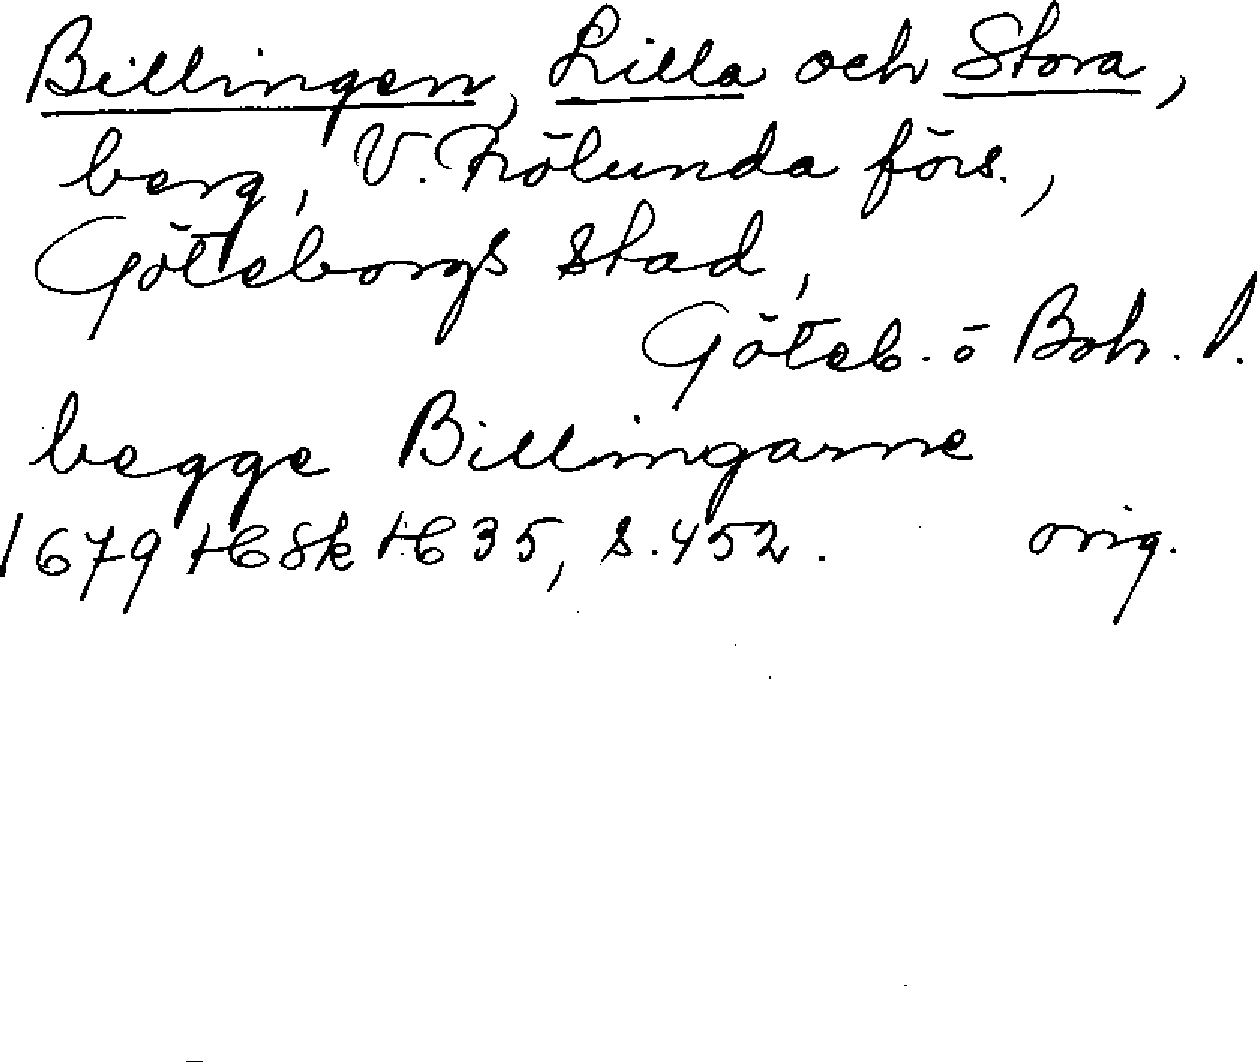 Billingen, Lilla och Stora,
berg, V. Frölunda förs.,
Göteborgs stad,
Göteb. o Boh. l.
begge Billingarne
1679 HSk H 35, s. 452. orig.